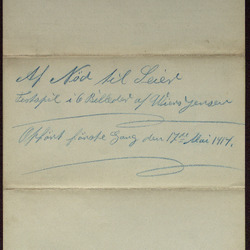 Af Nød til Seier
Festspil i 6 Billeder af Vims Jensen
Opført første Gang den 17de Mai 1914.